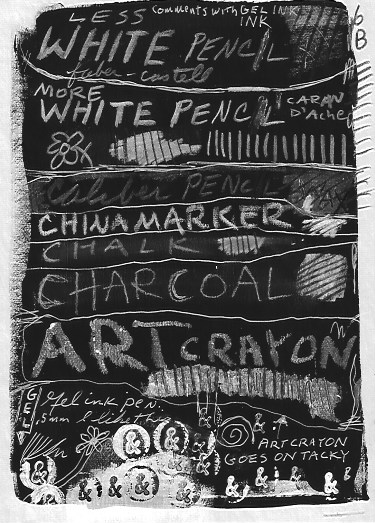 LESS Comments with GEL INK
INK
WHITE PENCIL
faber-castell
6B
MORE
WHITE PENCIL CARAN
D'Ache
Caliber PENCIL
WAX
CHINAMARKER
CHALK
CHARCOAL
ART CRAYON
GEL
Gel ink pen.
.5mm I like this
& & & &
ARTCRAYON
GOES ON TACKY
& & & & & & & &